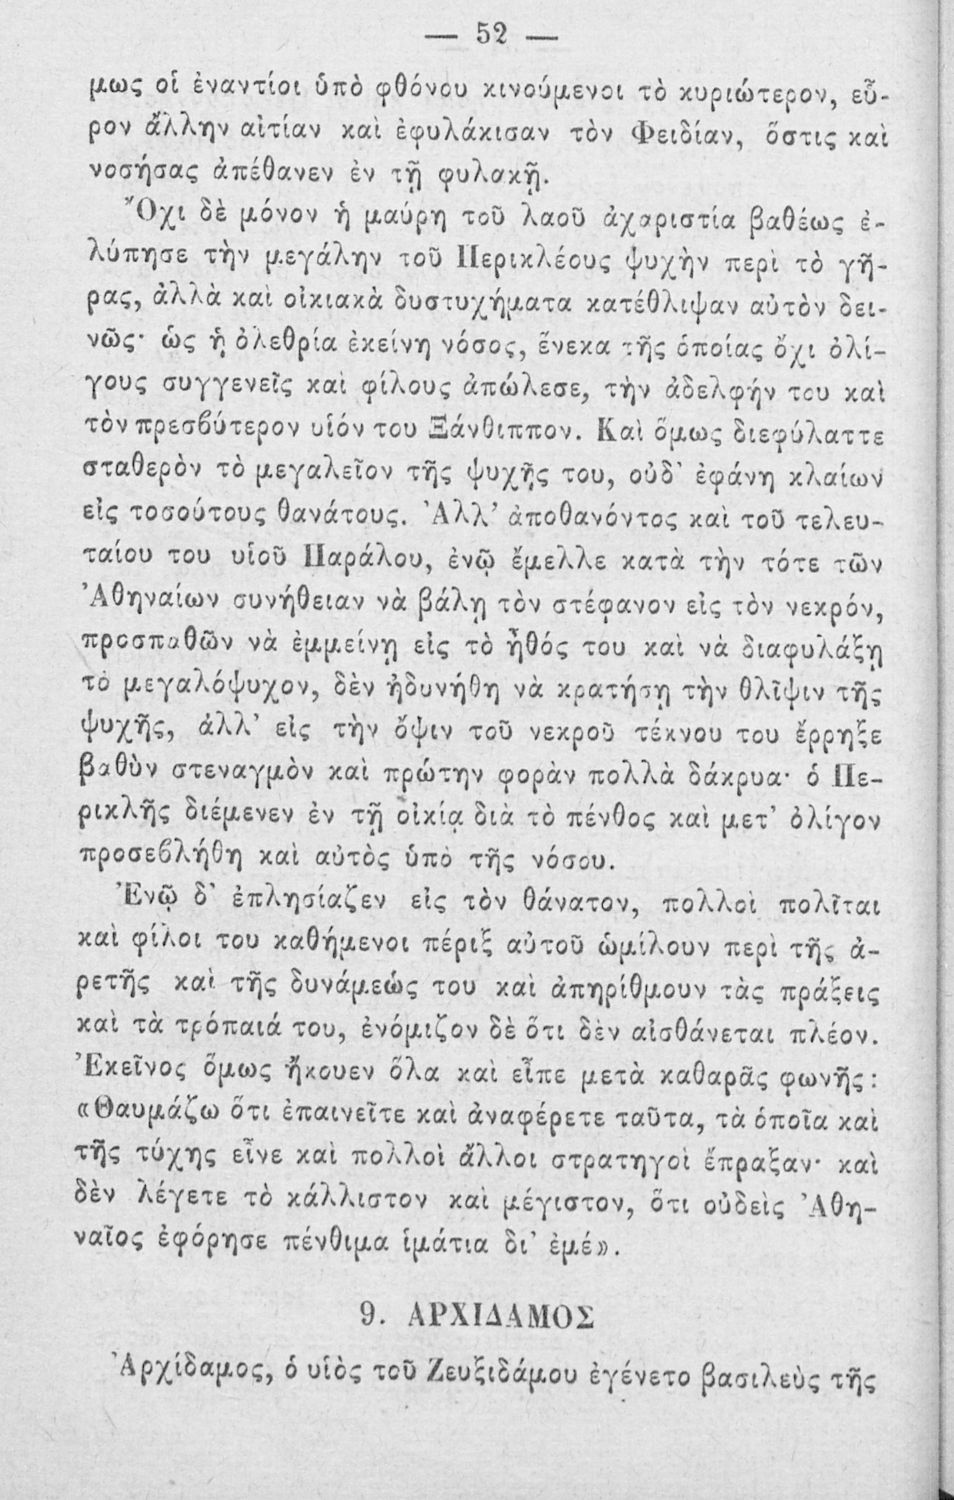 — 52 —
μως οἱ ἐναντίοι ὑπὸ φθόνου κινούμενοι τὸ κυριώτερον, εὗ-
ρον ἄλλην αἰτίαν καὶ ἐφυλάκισαν τὸν Φειδίαν, ὅστις καὶ
νοσήσας ἀπέθανεν ἐν τῇ φυλακῇ.
Ὄχι δὲ μόνον ἡ μαύρη τοῦ λαοῦ ἀχαριστία βαθέως ἐ-
λύπησε τὴν μεγάλην τοῦ Περικλέους ψυχὴν περὶ τὸ γῆ-
ρας, ἀλλὰ καὶ οἰκιακὰ δυστυχήματα κατέθλιψαν αὐτὸν δει-
νῶς· ὡς ἡ ὀλεθρία ἐκείνη νόσος, ἕνεκα τῆς ὁποίας ὄχι ὀλί-
γους συγγενεῖς καὶ φίλους ἀπώλεσε, τὴν ἀδελφήν του καὶ
τὸν πρεσβύτερον υἱόν του Ξάνθιππον. Καὶ ὅμως διεφύλαττε
σταθερὸν τὸ μεγαλεῖον τῆς ψυχῆς του, οὐδ' ἐφάνη κλαίων
εἰς τοσούτους θανάτους. Ἀλλ' ἀποθανόντος καὶ τοῦ τελευ-
ταίου του υἱοῦ Παράλου, ἐνῷ ἔμελλε κατὰ τὴν τότε τῶν
Ἀθηναίων συνήθειαν νὰ βάλῃ τὸν στέφανον εἰς τὸν νεκρόν,
προσπαθῶν νὰ ἐμμείνῃ εἰς τὸ ἦθός του καὶ νὰ διαφυλάξῃ
τὸ μεγαλόψυχον, δὲν ἠδυνήθη νὰ κρατήσῃ τὴν θλῖψιν τῆς
ψυχῆς, ἀλλ' εἰς τὴν ὄψιν τοῦ νεκροῦ τέκνου του ἔρρηξε
βαθὺν στεναγμὸν καὶ πρώτην φορὰν πολλὰ δάκρυα· ὁ Πε-
ρικλῆς διέμενεν ἐν τῇ οἰκίᾳ διὰ τὸ πένθος καὶ μετ' ὀλίγον
προσεβλήθη καὶ αὐτὸς ὑπὸ τῆς νόσου.
Ἐνῷ δ' ἐπλησίαζεν εἰς τὸν θάνατον, πολλοὶ πολῖται
καὶ φίλοι του καθήμενοι πέριξ αὐτοῦ ὡμίλουν περὶ τῆς ἀ-
ρετῆς καὶ τῆς δυνάμεώς του καὶ ἀπηρίθμουν τὰς πράξεις
καὶ τὰ τρόπαιά του, ἐνόμιζον δὲ ὅτι δὲν αἰσθάνεται πλέον.
Ἐκεῖνος ὅμως ἤκουεν ὅλα καὶ εἶπε μετὰ καθαρᾶς φωνῆς:
«Θαυμάζω ὅτι ἐπαινεῖτε καὶ ἀναφέρετε ταῦτα, τὰ ὁποῖα καὶ
τῆς τύχης εἶνε καὶ πολλοὶ ἄλλοι στρατηγοὶ ἔπραξαν· καὶ
δὲν λέγετε τὸ κάλλιστον καὶ μέγιστον, ὅτι οὐδεὶς Ἀθη-
ναῖος ἐφόρησε πένθιμα ἱμάτια δι' ἐμέ».
9. ΑΡΧΙΔΑΜΟΣ
Ἀρχίδαμος, ὁ υἱὸς τοῦ Ζευξιδάμου ἐγένετο βασιλεὺς τῆς